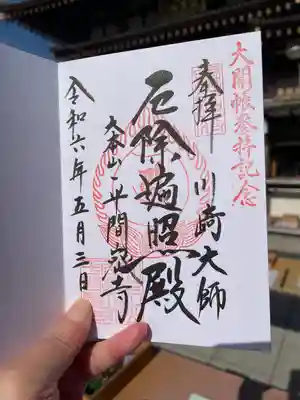 大開帳参拝記念
奉拝
川崎大師
厄除遍照殿
大本山平間寺
令和六年五月三日